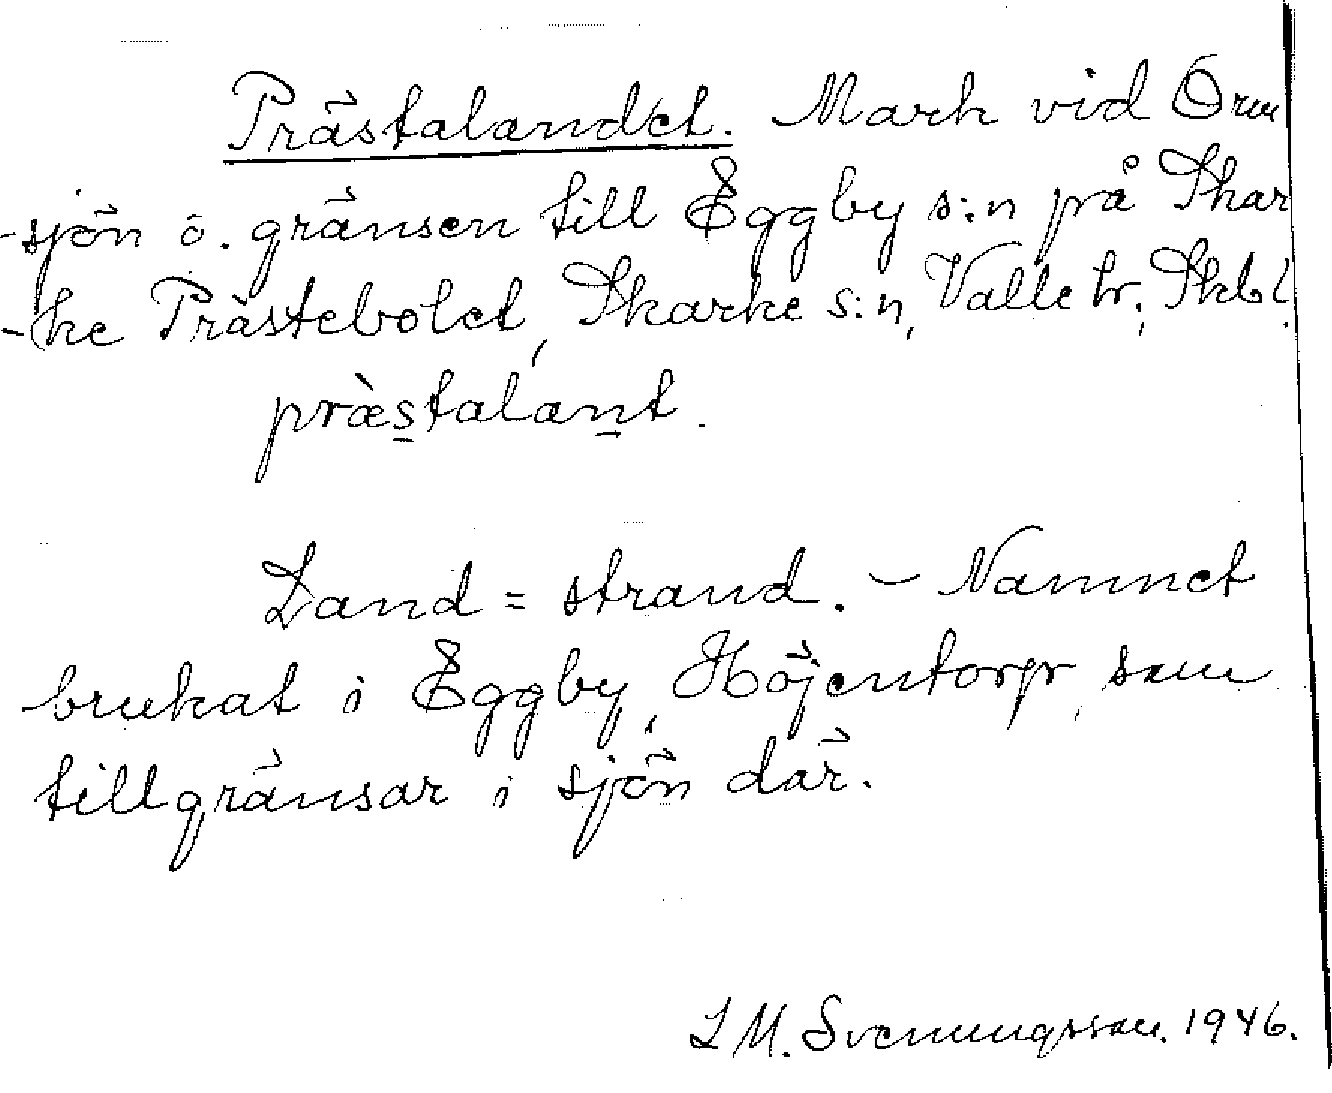 Prästalandet. Mark vid Orm
-sjön ö. gränsen till Eggby s:n på Skar
-ke Prästebolet, Skarke s:n, Valle hr, Skbl.
præstalant.
Land = strand. – Namnet
brukat i Eggby, Höjentorp, som
tillgränsar i sjön där.
L M. Svenungsson. 1946.